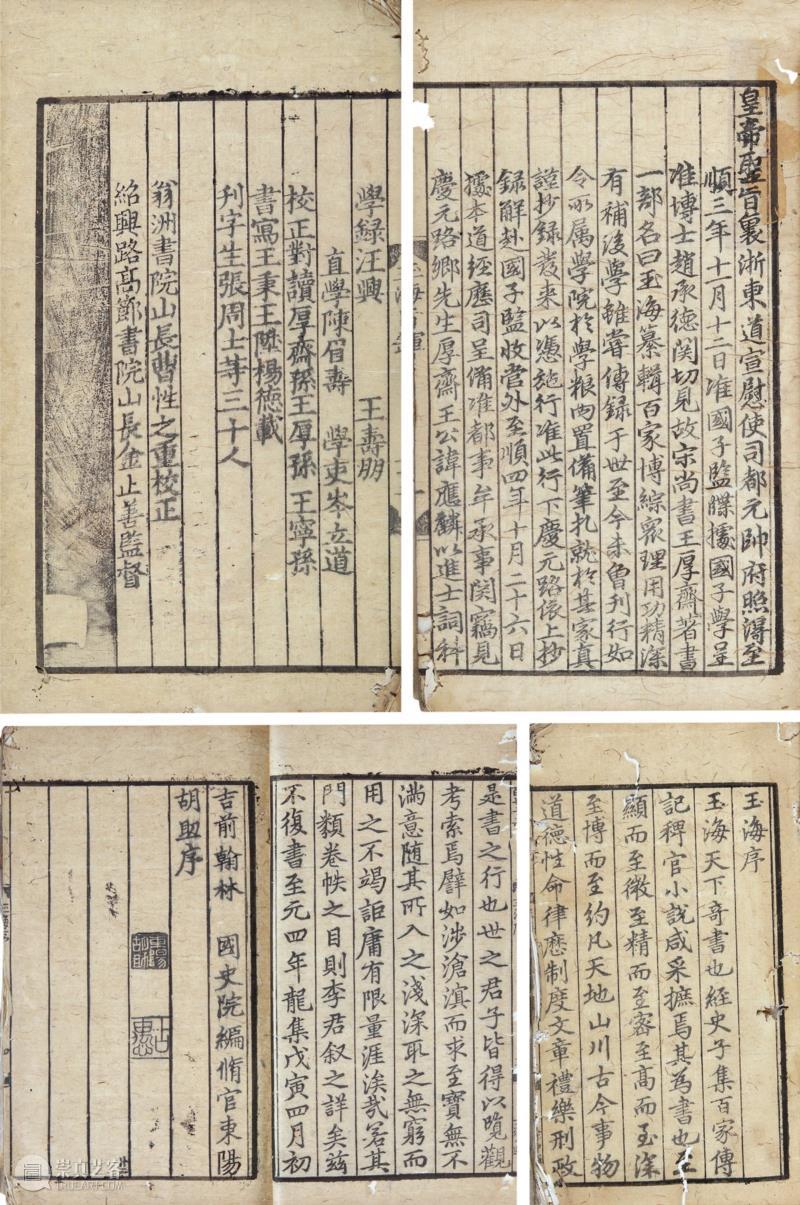 皇帝聖旨裏浙東道宣慰使司都元帥府照得至
順三年十一月十二日准國子監牒據國子學呈
准博士趙承德関切見故宋尚書王厚齋著書
一部名曰玉海纂輯百家博綜衆理用功精深
有補後學雖嘗傳録于世至今未曾刊行如
令所属學院於學粮內置備筆札就於其家真
謹抄録發來以憑施行准此行下慶元路依上抄
録解赴國子監收管外至順四年十月二十六日
據本道經歷司呈備准都事牟承事関竊見
慶元路鄉先生厚齋王公諱應麟以進士詞科
學録汪興 王壽朋
直學陳眉壽 學吏岑立道
校正對讀厚齋孫王厚孫王寧孫
書寫王秉王陞楊德載
刊字生張周士等三十人
翁洲書院山長曹性之重校正
紹興路高節書院山長金止善監督
玉海序
玉海天下奇書也経史子集百家傳
記稗官小說咸采摭焉其為書也至
顯而至微至精而至密至高而至深
至博而至約凡天地山川古今事物
道德性命律歷制度文章禮樂刑政
是書之行也世之君子皆得以覧觀
考索焉譬如涉滄溟而求至寶無不
滿意随其所入之淺深取之無窮而
用之不竭詎庸有限量涯涘㢤若其
門類卷帙之目則李君叙之詳矣茲
不復書至元四年龍集戊寅四月初
吉前翰林 國史院編脩官東陽
胡助序
崇真艺客
TRUEART.COM